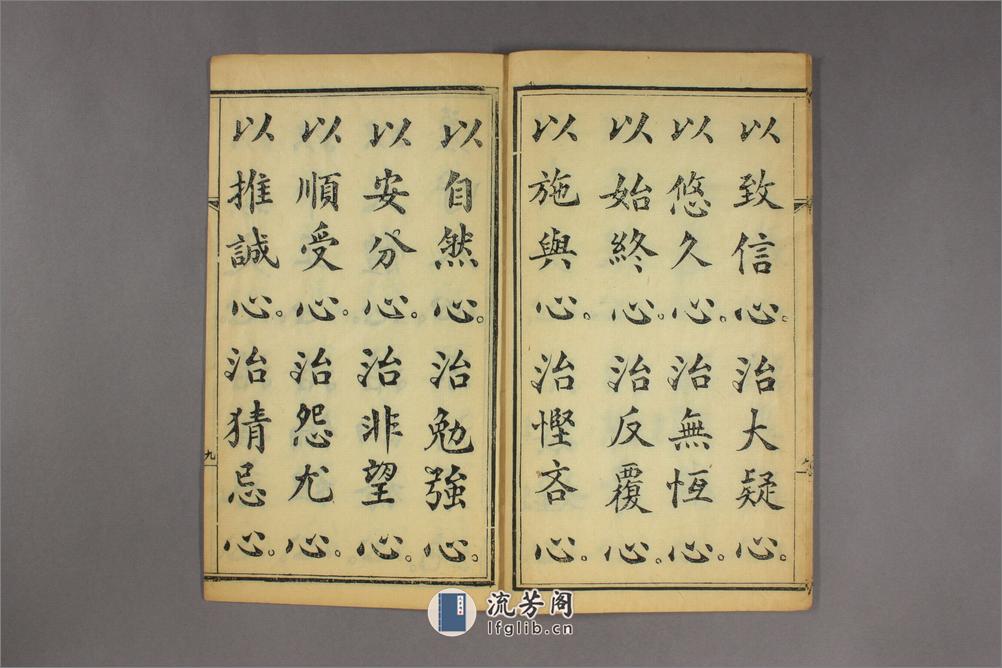 以致信心。治大疑心。
以悠久心。治無恆心。
以始終心。治反覆心。
以施與心。治慳吝心。
以自然心。治勉強心。
以安分心。治非望心。
以順受心。治怨尤心。
以推誠心。治猜忌心。
九
流芳阁
lfglib.cn